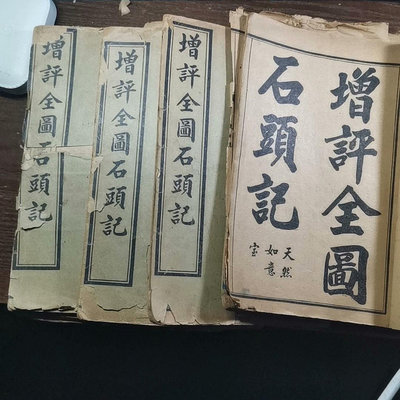 增評全圖石頭記
增評全圖石頭記
增評全圖石頭記
增評全圖
石頭記
天然
如意
室